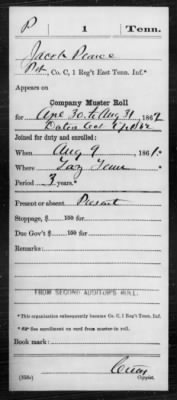 P 1 Tenn.
Jacob Pearce
Pvt, Co. C, 1 Reg't East Tenn. Inf.*
Appears on
Company Muster Roll
for Apl 30 to Aug 31, 1862
Joined for duty and enrolled:
When Aug 9, 1861.
Where Tenn
Period 3 years.*
Present or absent Present
Stoppage, $ 100 for
Due Gov't $ 100 for
Remarks:
FROM SECOND AUDITOR'S ROLL.
* This organization subsequently became Co. C, 1 Reg't Tenn. Inf.
*See enrollment on card from muster-in roll.
Book mark:
(358c) Copyist.